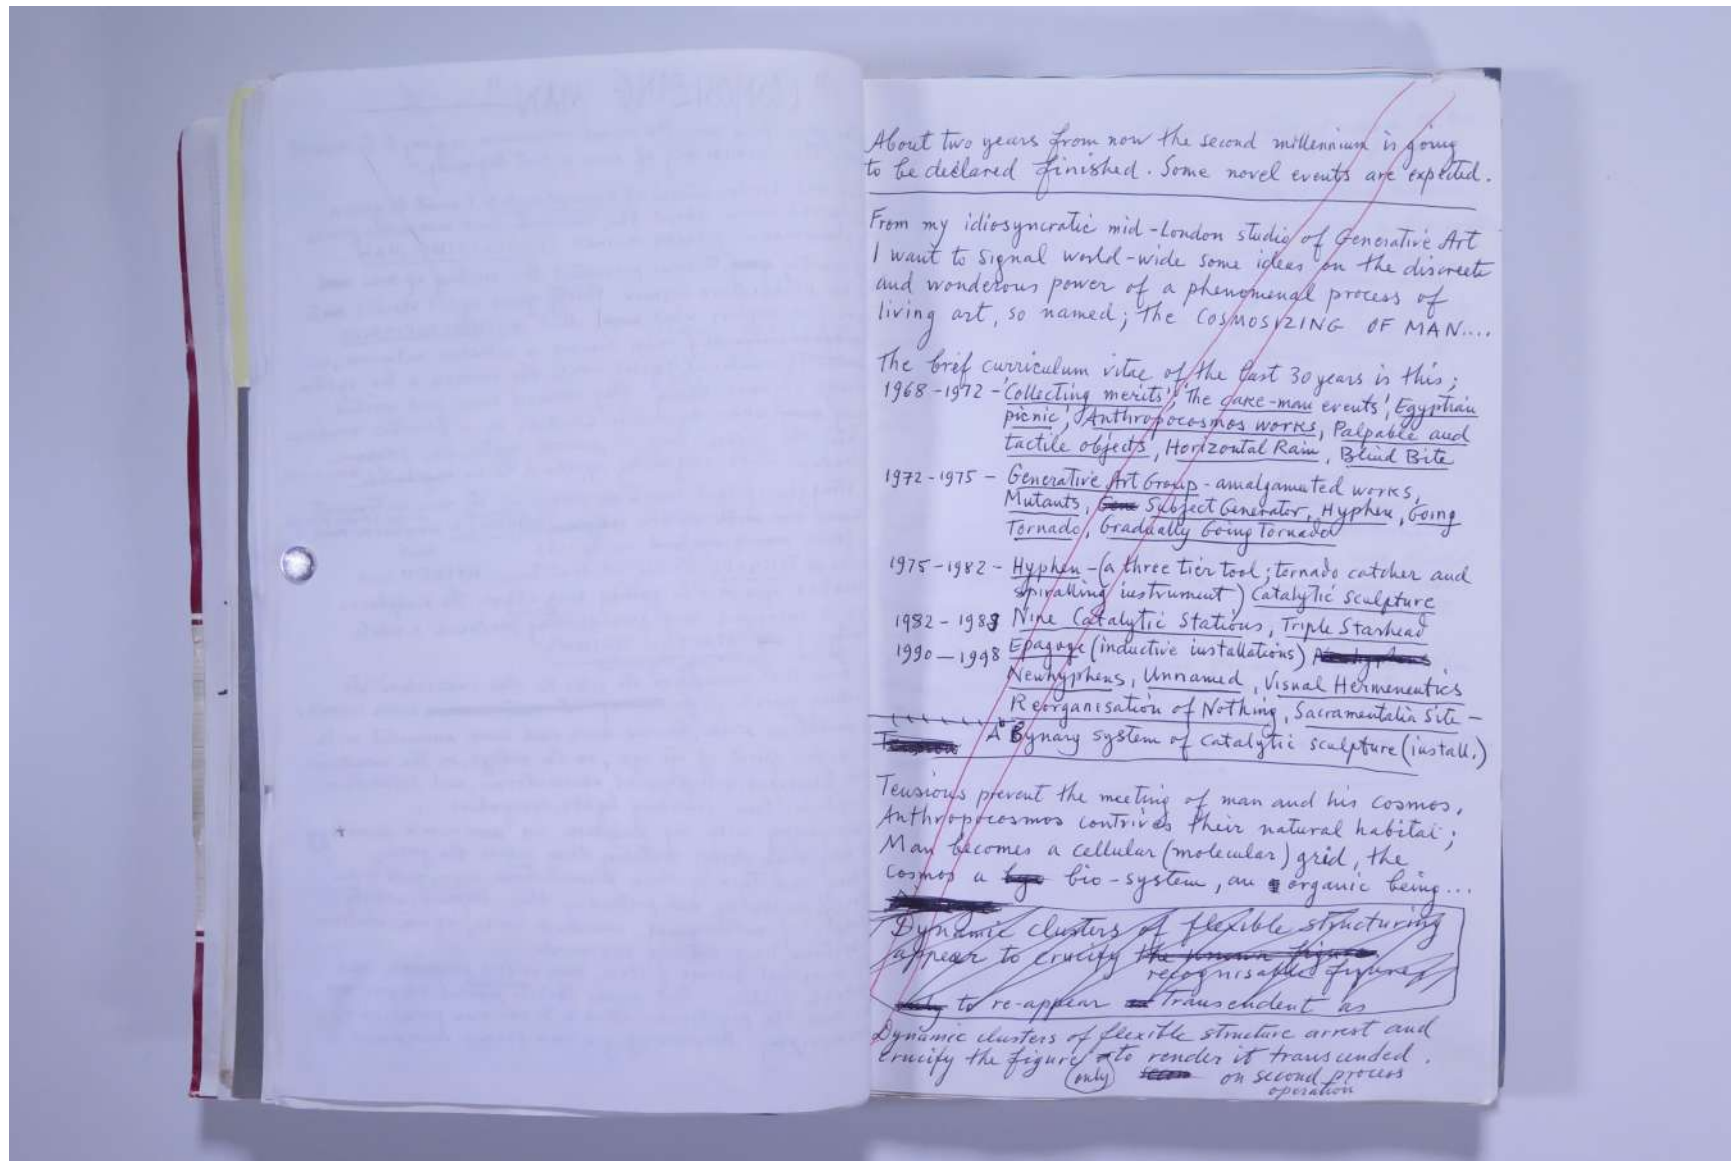 About two years from now the second millennium is going
to be declared finished. Some novel events are expected.
From my idiosyncratic mid-London studio of Generative Art
I want to signal world-wide some ideas on the discreete
and wonderous power of a phenomenal process of
living art, so named; the COSMOSIZING OF MAN....
The brief curriculum vitae of the last 30 years is this;
1968-1972 - 'Collecting merits', 'The cake-man events', Egyptian
picnic', Anthropocosmos works, Palpable and
tactile objects', Horizontal Rain, Blind Bite
1972-1975 - Generative Art Group - amalgamated works,
Mutants, Subject Generator, Hyphen, Going
Tornado, Gradually Going Tornado
1975-1982 - Hyphen - (a three tier tool; tornado catcher and
spiralling instrument) Catalytic Sculpture
1982-1989 Nine Catalytic Stations, Triple Starhead
1990-1998 Epagoge (inductive installations)
Newhyphens, Unnamed, Visual Hermeneutics
Reorganisation of Nothing, Sacramentalia Site -
A Bynary system of catalytic sculpture (install.)
Tensions prevent the meeting of man and his cosmos,
Anthropocosmos contrives their natural habitat;
Man becomes a cellular (molecular) grid, the
cosmos a bio-system, an organic being...
Dynamic clusters of flexible structuring
appear to crucify the known figure
recognisable figures
to re-appear Transcendent as
Dynamic clusters of flexible structure arrest and
crucify the figure to render it transcended.
only on second process
operation